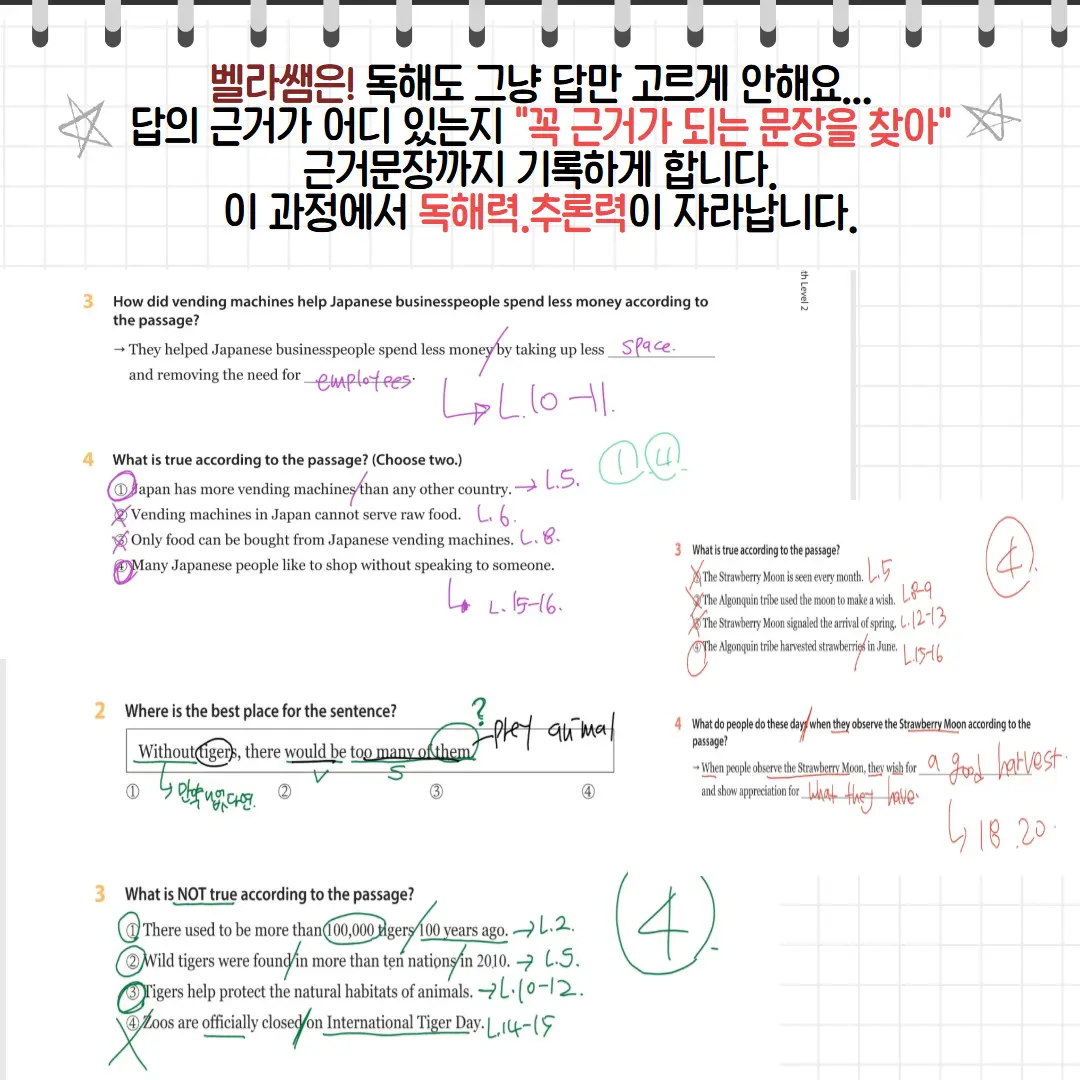 벨라쌤은! 독해도 그냥 답만 고르게 안해요...
답의 근거가 어디 있는지 "꼭 근거가 되는 문장을 찾아"
근거문장까지 기록하게 합니다.
이 과정에서 독해력.추론력이 자라납니다.
th Level 2
3 How did vending machines help Japanese businesspeople spend less money according to
the passage?
→ They helped Japanese businesspeople spend less money by taking up less space.
and removing the need for employees.
L.10-11.
4 What is true according to the passage? (Choose two.)
① ④
① Japan has more vending machines than any other country. → L.5.
② Vending machines in Japan cannot serve raw food. L.6.
③ Only food can be bought from Japanese vending machines. L.8.
④ Many Japanese people like to shop without speaking to someone.
L.15-16.
3 What is true according to the passage?
4
① The Strawberry Moon is seen every month. L.5
② The Algonquin tribe used the moon to make a wish. L8-9
③ The Strawberry Moon signaled the arrival of spring. L.12-13
④ The Algonquin tribe harvested strawberries in June. L.15-16
2 Where is the best place for the sentence?
?
Without tigers, there would be too many of them.
prey animal
V S
만약 ~ 없다면.
① ② ③ ④
4 What do people do these days when they observe the Strawberry Moon according to the
passage?
→ When people observe the Strawberry Moon, they wish for a good harvest.
and show appreciation for what they have.
18.20.
3 What is NOT true according to the passage?
4
① There used to be more than 100,000 tigers 100 years ago. → L.2.
② Wild tigers were found in more than ten nations in 2010. → L.5.
③ Tigers help protect the natural habitats of animals. → L.10-12.
④ Zoos are officially closed on International Tiger Day. L.14-15